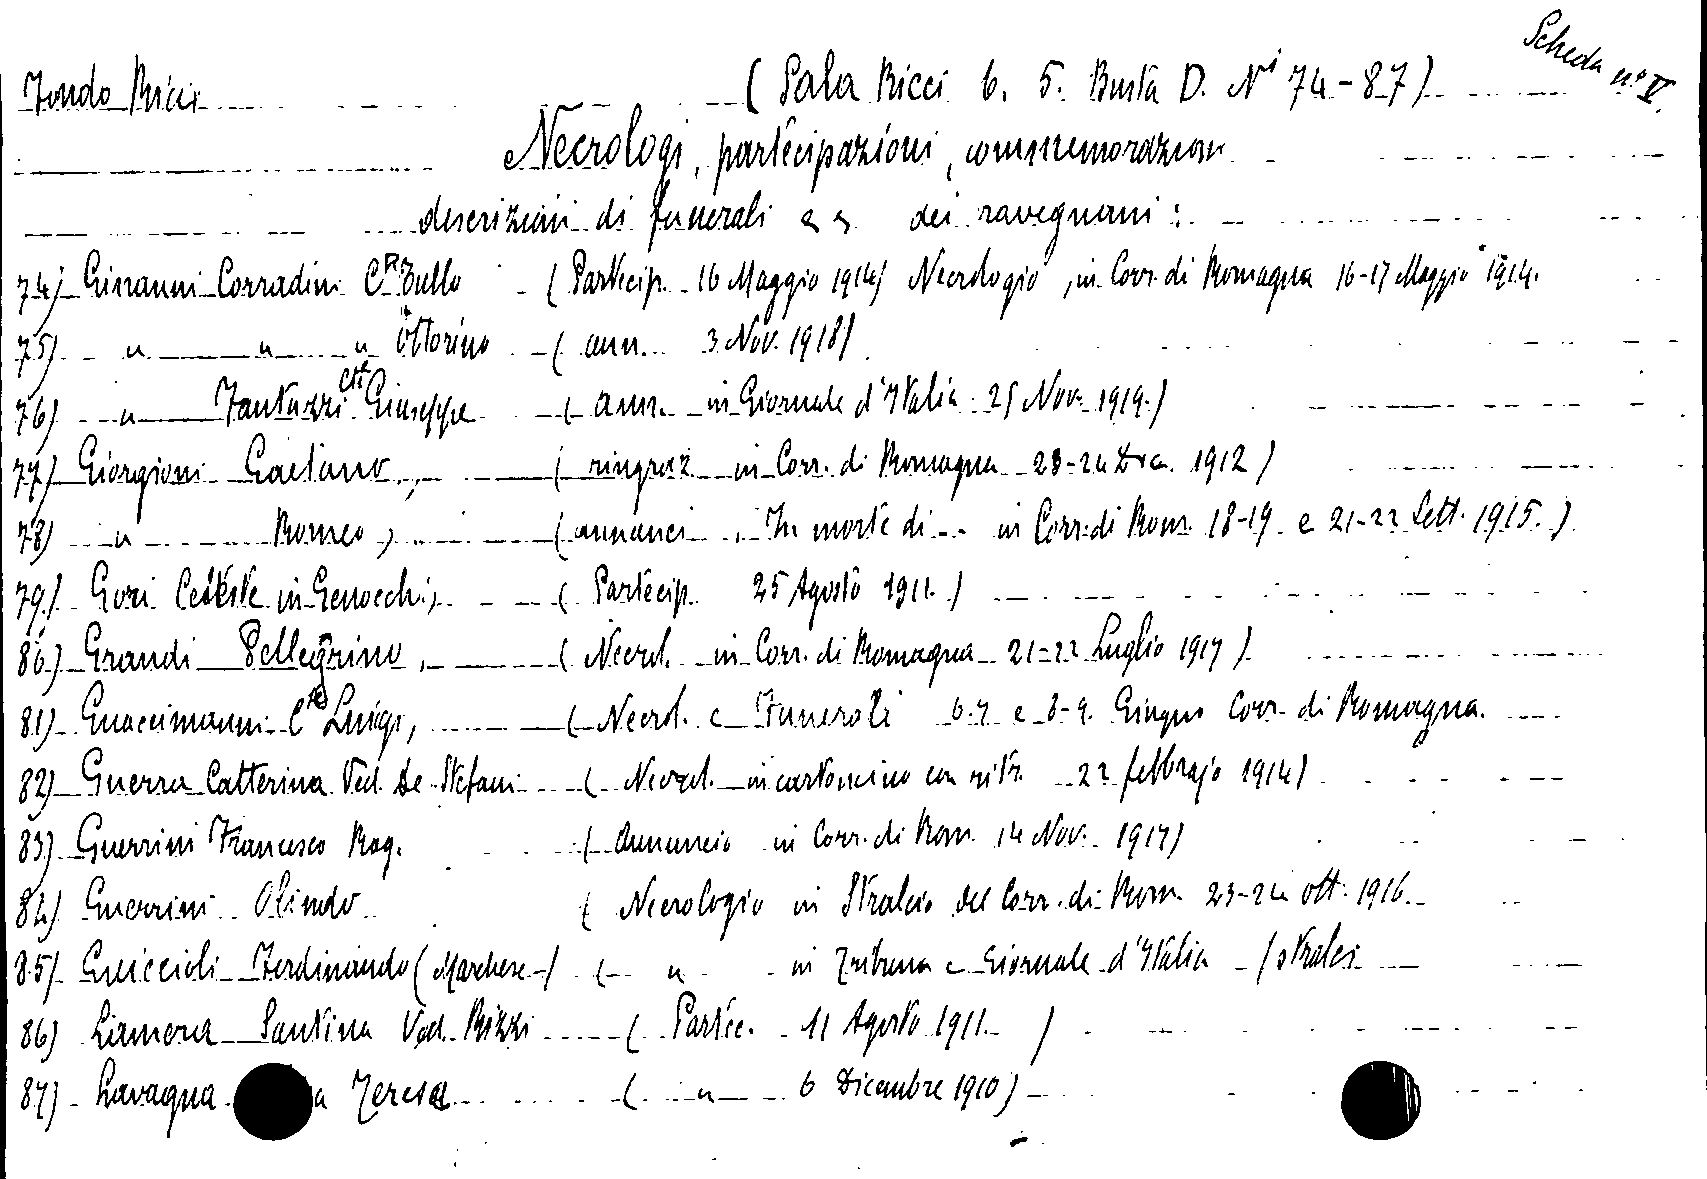 Scheda n° V.
Fondo Ricci (Sala Ricci b. 5. Busta D. Ni 74-87)
Necrologi, partecipazioni, commemorazioni
descrizioni di funerali " " dei ravegnani:
74) Ginanni Corradini Tullo (Partecip. 16 Maggio 1914) Necrologio, in Corr. di Romagna 16-17 Maggio 1914.
75) " " " Ottorino (ann. 3 Nov. 1918)
76) " Fantuzzi Cte Giuseppe (ann. in Giornale d'Italia 25 Nov. 1919.)
77) Giorgioni Gaetano, (ringraz in Corr. di Romagna 23-24 Dic. 1912)
78) " Romeo, (annunci. In morte di... in Corr. di Rom. 18-19 e 21-22 Sett. 1915.)
79.) Gori Celeste in Genocchi, (Partecip. 25 Agosto 1911.)
80.) Grandi Pellegrino, (Necrol. in Corr. di Romagna 21-22 Luglio 1917)
81) Guaccimanni Luigi, (Necrol. e Funerali 6-7 e 8-9. Giugno Corr. di Romagna.
82) Guerra Catterina Ved. De Stefani (Necrol. in cartoncino con ritr. 22 febbrajo 1914)
83) Guerrini Francesco Rag. (Annuncio in Corr. di Rom. 14 Nov. 1917)
84) Guerrini Olindo (Necrologio in Stralcio del Corr. di Rom. 23-24 ott. 1916.
85) Guiccioli Ferdinando (Marchese) ( " in Tribuna e Giornale d'Italia (stralci
86) Lamera Santina Ved. Rizzi (Partec. 11 Agosto 1911.)
87) Lavagna Teresa ( " 6 Dicembre 1910)